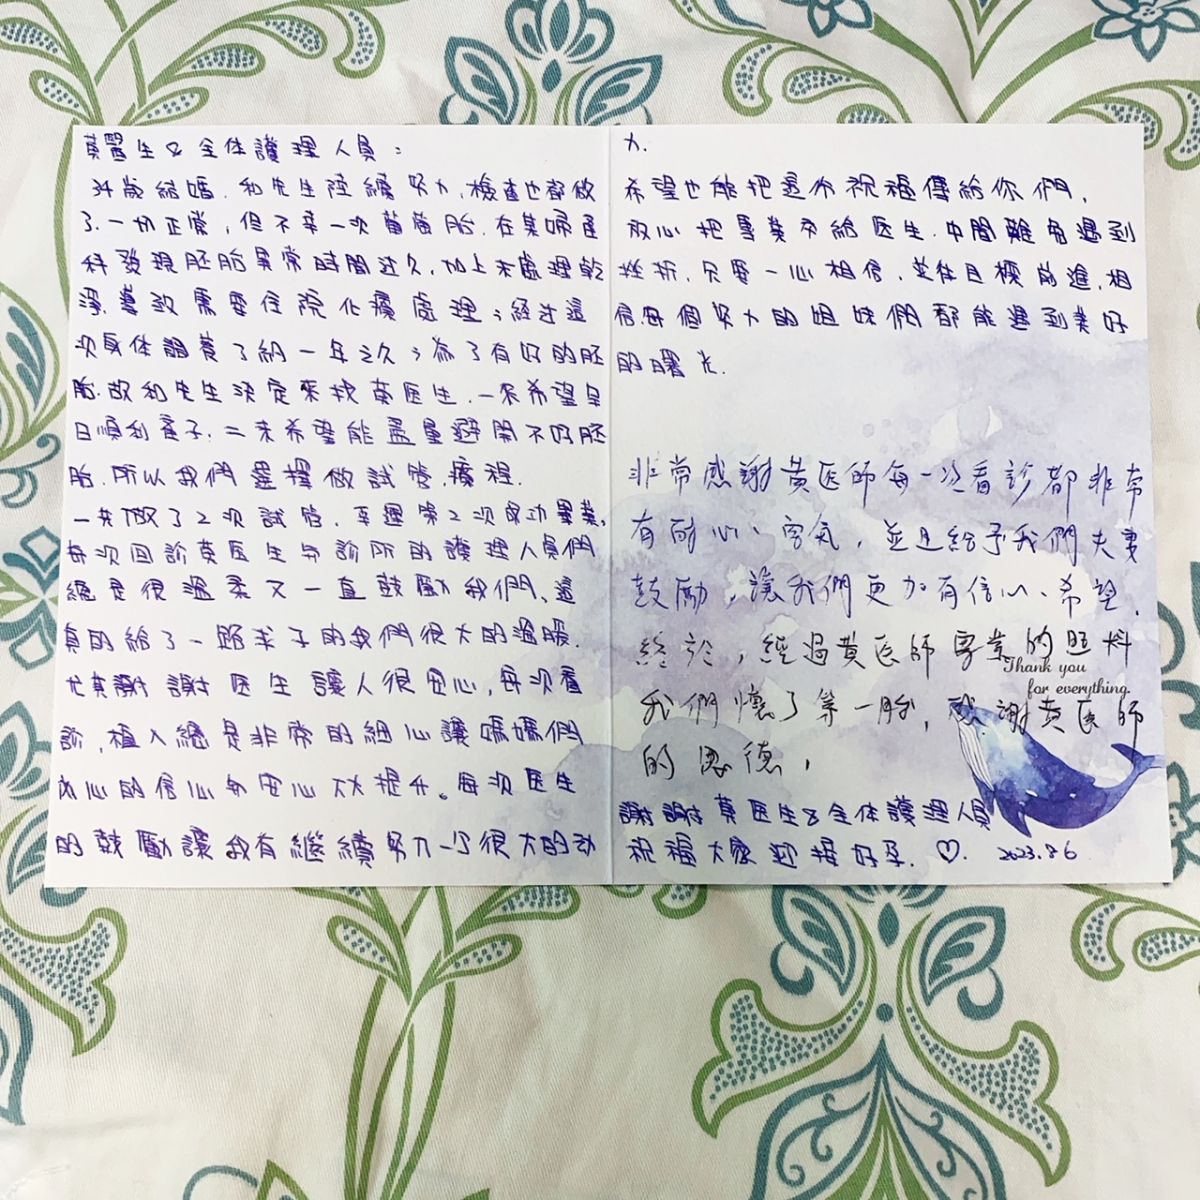 黃醫生&全体護理人員：
34歲結婚.和先生陸續努力,檢查也都做
了.一切正常,但不幸一次葡萄胎.在某婦產
科發現胚胎異常時間过久,加上未處理乾
淨,導致需要住院化療處理；經过這
次身体調養了約一年之久；為了有好的胚
胎.故和先生決定來找黃医生.一來希望早
日順利產子.二來希望能盡量避開不好胚
胎.所以我們選擇做試管.療程.
一共做了2次試管.幸運第2次成功畢業。
每次回診黃医生与診所的護理人員們
總是很溫柔又一直鼓勵我們、這
真的給了一路求子的我們很大的溫暖.
尤其謝謝医生讓人很安心,每次看
診,植入總是非常的細心讓媽媽們
內心的信心与安心大大提升。每次医生
的鼓勵讓我有繼續努力下很大的动
力.
希望也能把這份祝福傳給你們,
放心把專業交給医生.中間難免遇到
挫折.只要一心相信,並往目標前進,相
信每個努力的姐妹們都能遇到美好
的曙光.
非常感謝黃医師每一次看診都非常
有耐心、客氣,並且給予我們夫妻
鼓励,讓我們更加有信心、希望.
終於,經過黃医師專業的照料
Thank you
for everything.
我們懷了第一胎,感謝黃医師
的恩德,
謝謝黃医生&全体護理人員
祝福大家迎接好孕.♡. 2023.8.6